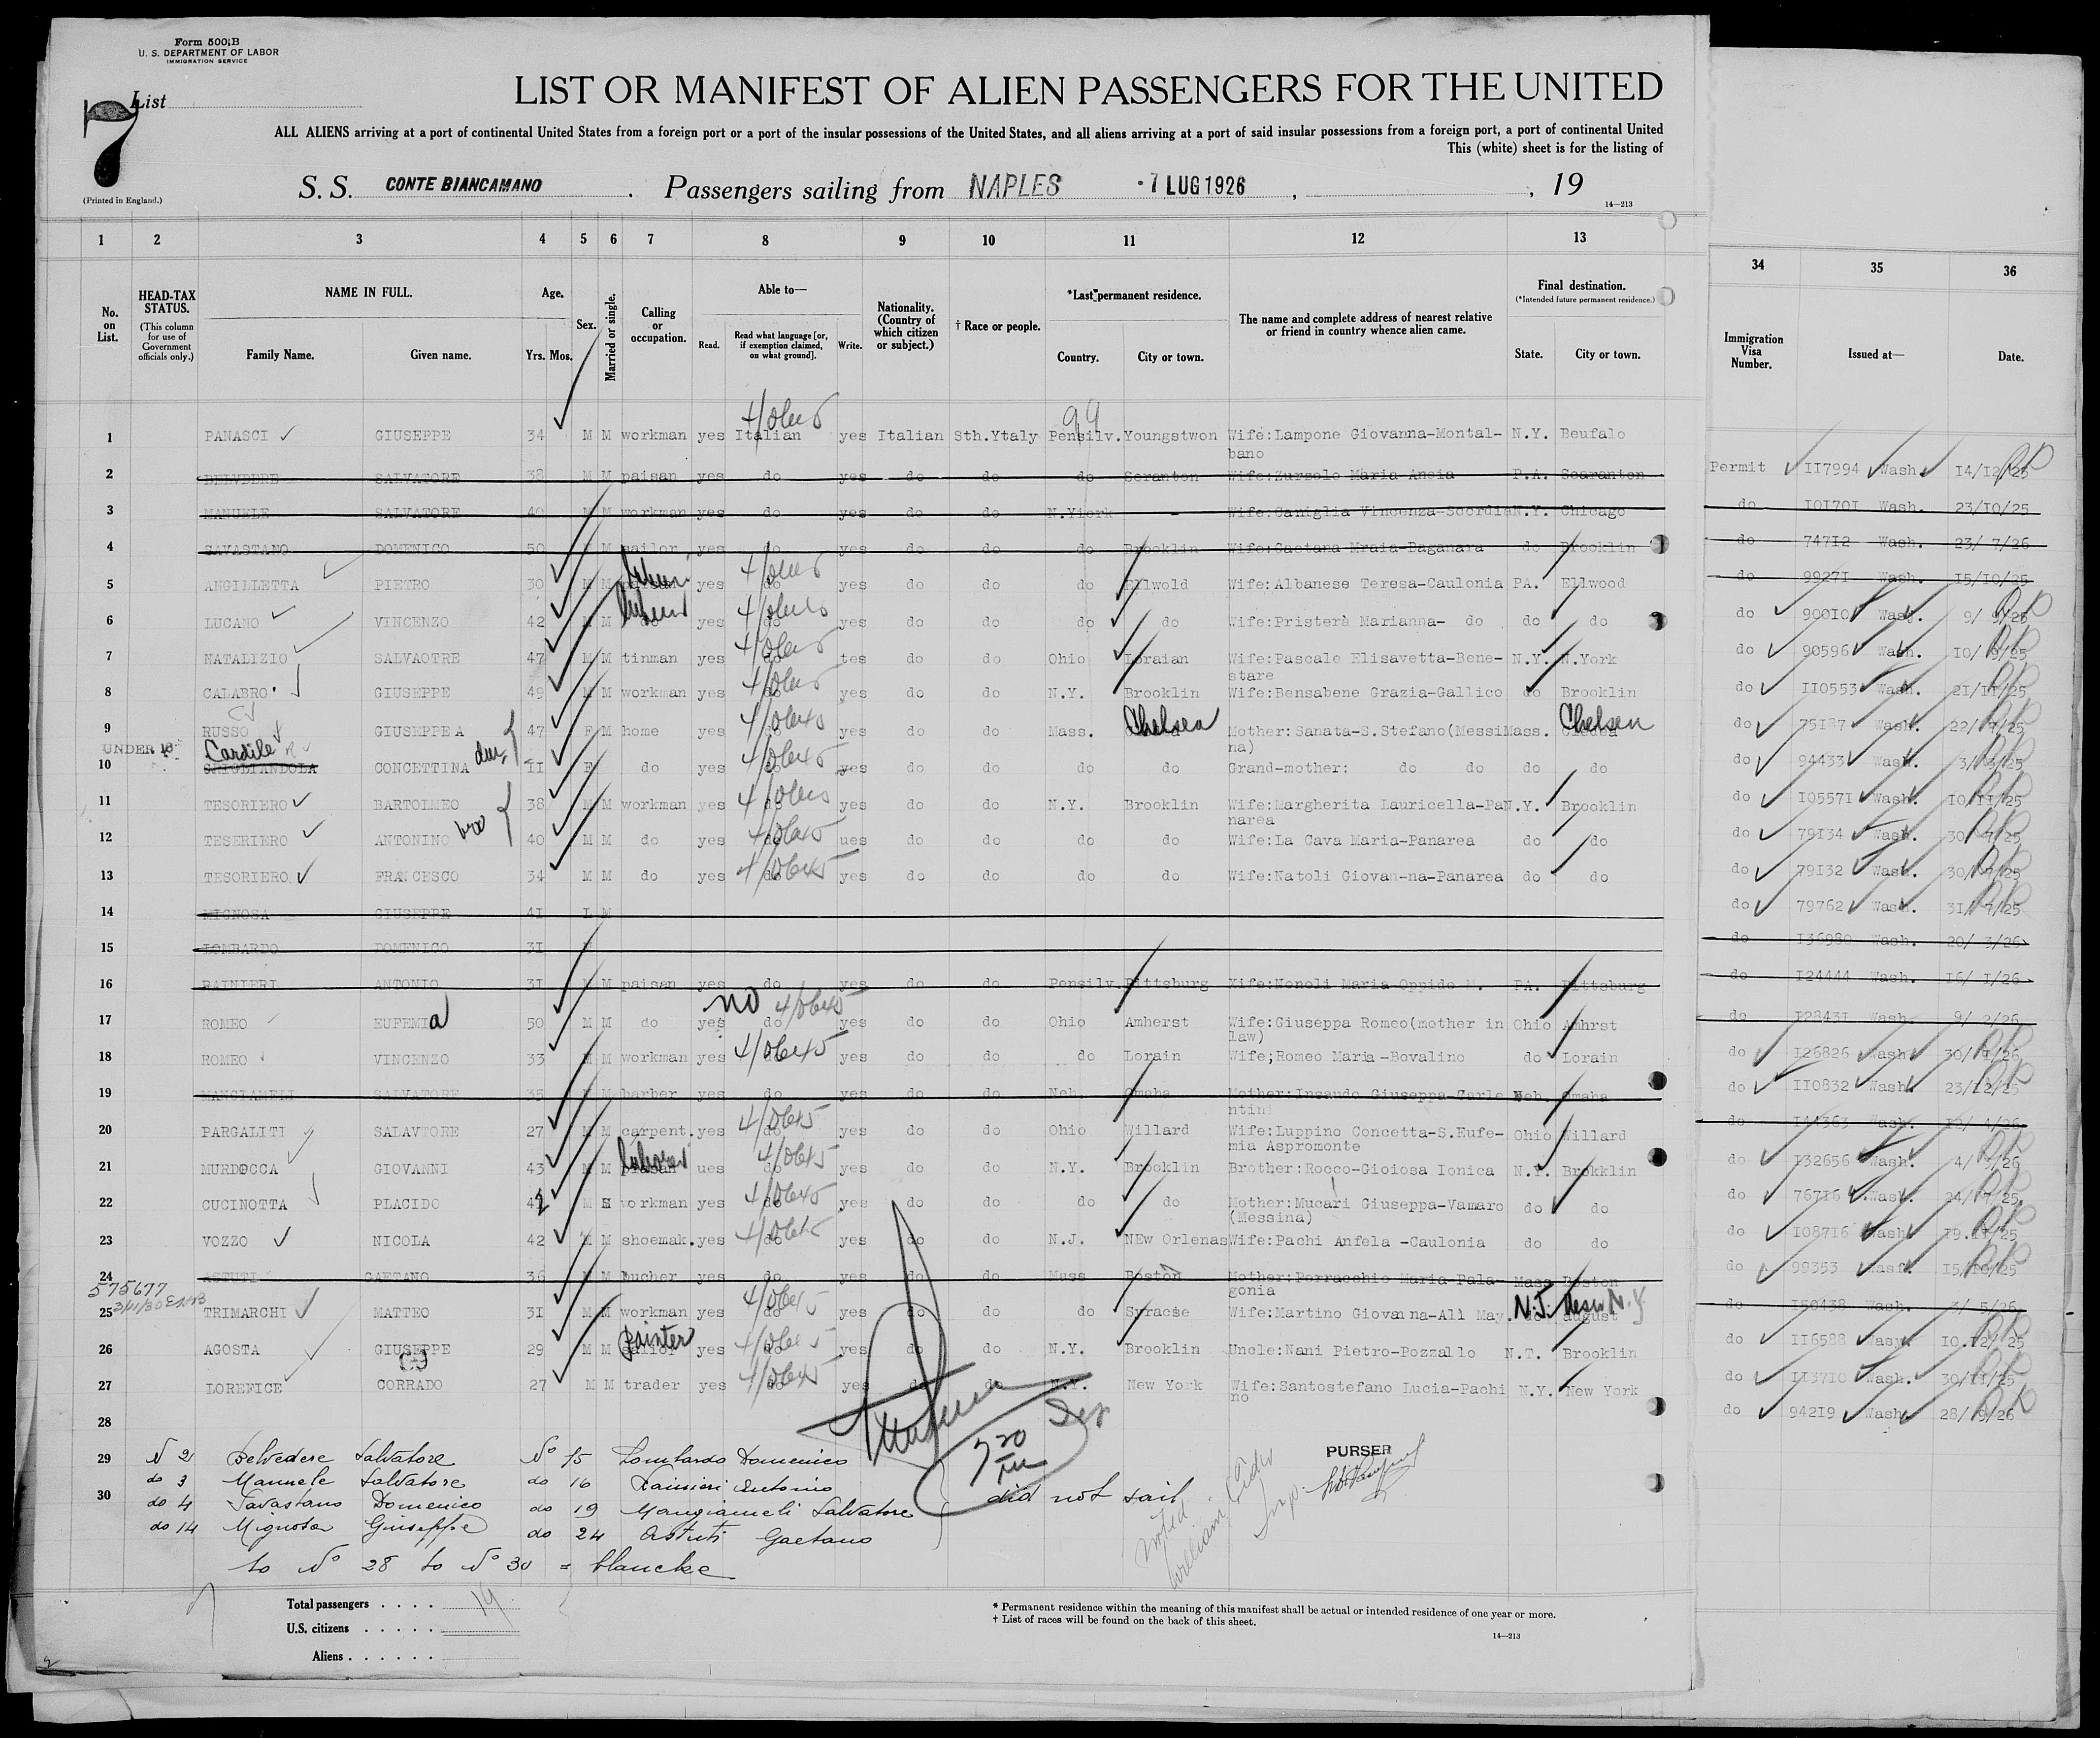 Form 500 B
U. S. DEPARTMENT OF LABOR
IMMIGRATION SERVICE
List
7
(Printed in England.)
LIST OR MANIFEST OF ALIEN PASSENGERS FOR THE UNITED
ALL ALIENS arriving at a port of continental United States from a foreign port or a port of the insular possessions of the United States, and all aliens arriving at a port of said insular possessions from a foreign port, a port of continental United
This (white) sheet is for the listing of
S. S. CONTE BIANCAMANO . Passengers sailing from NAPLES 7 LUG 1926 , , 19
14—213
1 2 3 4 5 6 7 8 9 10 11 12 13 34 35 36
No. on List.
HEAD-TAX STATUS.
(This column for use of Government officials only.)
NAME IN FULL.
Family Name. Given name.
Age.
Yrs. Mos.
Sex.
Married or single.
Calling or occupation.
Able to—
Read. Read what language [or, if exemption claimed, on what ground]. Write.
Nationality. (Country of which citizen or subject.)
† Race or people.
*Last permanent residence.
Country. City or town.
The name and complete address of nearest relative or friend in country whence alien came.
Final destination.
(*Intended future permanent residence.)
State. City or town.
Immigration Visa Number.
Issued at—
Date.
99
1 PANASCI GIUSEPPE 34 M M workman yes Italian yes Italian Sth.Ytaly Pensilv. Youngstwon Wife:Lampone Giovanna-Montal- N.Y. Beufalo
bano
Permit 117994 Wash. 14/12/25
2 BELVDERE SALVATORE 38 M M paisan yes do yes do do do Scranton Wife:Zurzolo Maria Ancia P.A. Scaranton
do 101701 Wash. 23/10/25
3 MANUELE SALVATORE 40 M M workman yes do yes do do N.Yiork - Wife:Caniglia Vincenza-Scordia N.Y. Chicago
do 74712 Wash. 23/ 7/26
4 SAVASTANO DOMENICO 50 M M sailor yes do yes do do do Brooklin Wife:Gaetana Mraia-Baganara do Brooklin
do 99271 Wash. 15/10/25
5 ANGILLETTA PIETRO 30 M M yes do yes do do do Ellwold Wife:Albanese Teresa-Caulonia PA. Ellwood
do 90010 Wash. 9/ 9/25
6 LUCANO VINCENZO 42 M M do yes do yes do do do do Wife:Pristerà Marianna- do do do
do 90596 Wash. 10/ 9/25
7 NATALIZIO SALVAOTRE 47 M M tinman yes do tes do do Ohio Loraian Wife:Pascale Elisavetta-Bene- N.Y. N.York
stare
do 110553 Wash. 21/11/25
8 CALABRO' GIUSEPPE 49 M M workman yes do yes do do N.Y. Brooklin Wife:Bensabene Grazia-Gallico do Brooklin
do 75187 Wash. 22/ 7/25
9 RUSSO GIUSEPPE A 47 F M home yes do yes do do Mass. Chelsea Mother:Sanata-S.Stefano(Messi Mass. Chelsea
na)
do 94433 Wash.
UNDER 16
Cardile
10 GRIGLIANDOLA CONCETTINA 11 F do yes do yes do do do do Grand-mother: do do do do
do 105571 Wash. 10/11/25
11 TESORIERO BARTOLMEO 38 M M workman yes do yes do do N.Y. Brooklin Wife:Margherita Lauricella-Pa N.Y. Brooklin
narea
do 79134 Wash. 30/ 7/25
bro
12 TESERIERO ANTONINO 40 M M do yes do ues do do do do Wife:La Cava Maria-Panarea do do
do 79132 Wash. 30/ 7/25
13 TESORIERO FRANCESCO 34 M M do yes do yes do do do do Wife:Natoli Giovan-na-Panarea do do
do 79762 Wash. 31/ 7/25
14 MIGNOSA GIUSEPPE 41 M
do 136980 Wash. 20/ 3/26
15 LOMBARDO DOMENICO 31
do 124444 Wash. 16/ 1/26
16 RAINIERI ANTONIO 31 M M paisan yes do yes do do Pensilv. Pittsburg Xife:Nonoli Maria Oppido M. PA. Pittsburg
do 128431 Wash. 9/ 2/26
no
17 ROMEO EUFEMIa 50 M M do yes do yes do do Ohio Amherst Wife:Giuseppa Romeo(mother in Ohio Amhrst
law)
do 126826 Wash. 30/ 1/26
18 ROMEO VINCENZO 33 M M workman yes do yes do do do Lorain Wife;Romeo Maria-Bovalino do Lorain
do 110832 Wash. 23/12/25
19 MANGIAMELI SALVATORE 35 M M barber yes do yes do do Neb. Omaha Mother:Insaudo Giuseppa-Carle Neb. Omaha
ntini
do 144363 Wash.
20 PARGALITI SALAVTORE 27 M M carpent. yes do yes do do Ohio Willard Wife:Luppino Concetta-S.Eufe- Ohio Willard
mia Aspromonte
do 132656 Wash.
21 MURDOCCA GIOVANNI 43 M M laborer ues do yes do do N.Y. Brooklin Brother:Rocco-Gioiosa Ionica N.Y. Brokklin
do 76716 Wash. 24/ 7/25
22 CUCINOTTA PLACIDO 42 M workman yes do yes do do do do Mother:Mucari Giuseppa-Vamaro do do
(Messina)
do 108716 Wash. 19.11/25
23 VOZZO NICOLA 42 M M shoemak. yes do yes do do N.J. NEw Orlenas Wife:Pachi Anfela -Caulonia do do
do 99353 Wash. 15/10/25
24 ASTUTI GAETANO 36 M M bucher yes do yes do do Mass Boston Mother:Perracchio Maria-Pala- Mass Boston
gonia
do 150438 Wash. 3/ 5/26
575677
25 TRIMARCHI MATTEO 31 M M workman yes do yes do do do Syracse Wife:Martino Giovanna-All May. N.J. august N.Y
do 116588 Wasy. 10.12/ 25
26 AGOSTA GIUSEPPE 29 M M Painter yes do yes do do N.Y. Brooklin Uncle:Nani Pietro-Pozzallo N.T. Brooklin
do 113710 Wash. 30/11/25
27 LOREFICE CORRADO 27 M M trader yes do yes do do N.Y. New York Wife:Santostefano Lucia-Pachi N.Y. New York
no
do 94219 Wash. 28/ 9/26
28
29 N 2 Belvedere Salvatore No 15 Lombardo Domenico
do 3 Manuele Salvatore do 16 Rainieri Antonio
30 do 4 Savastano Domenico do 19 Mangiameli Salvatore
do 14 Mignosa Giuseppe do 24 Astuti Gaetano
did not sail
to No 28 to No 30 = blancke
PURSER
Total passengers . . . . 19
U.S. citizens . . . . .
Aliens . . . . . .
* Permanent residence within the meaning of this manifest shall be actual or intended residence of one year or more.
† List of races will be found on the back of this sheet.
14—213